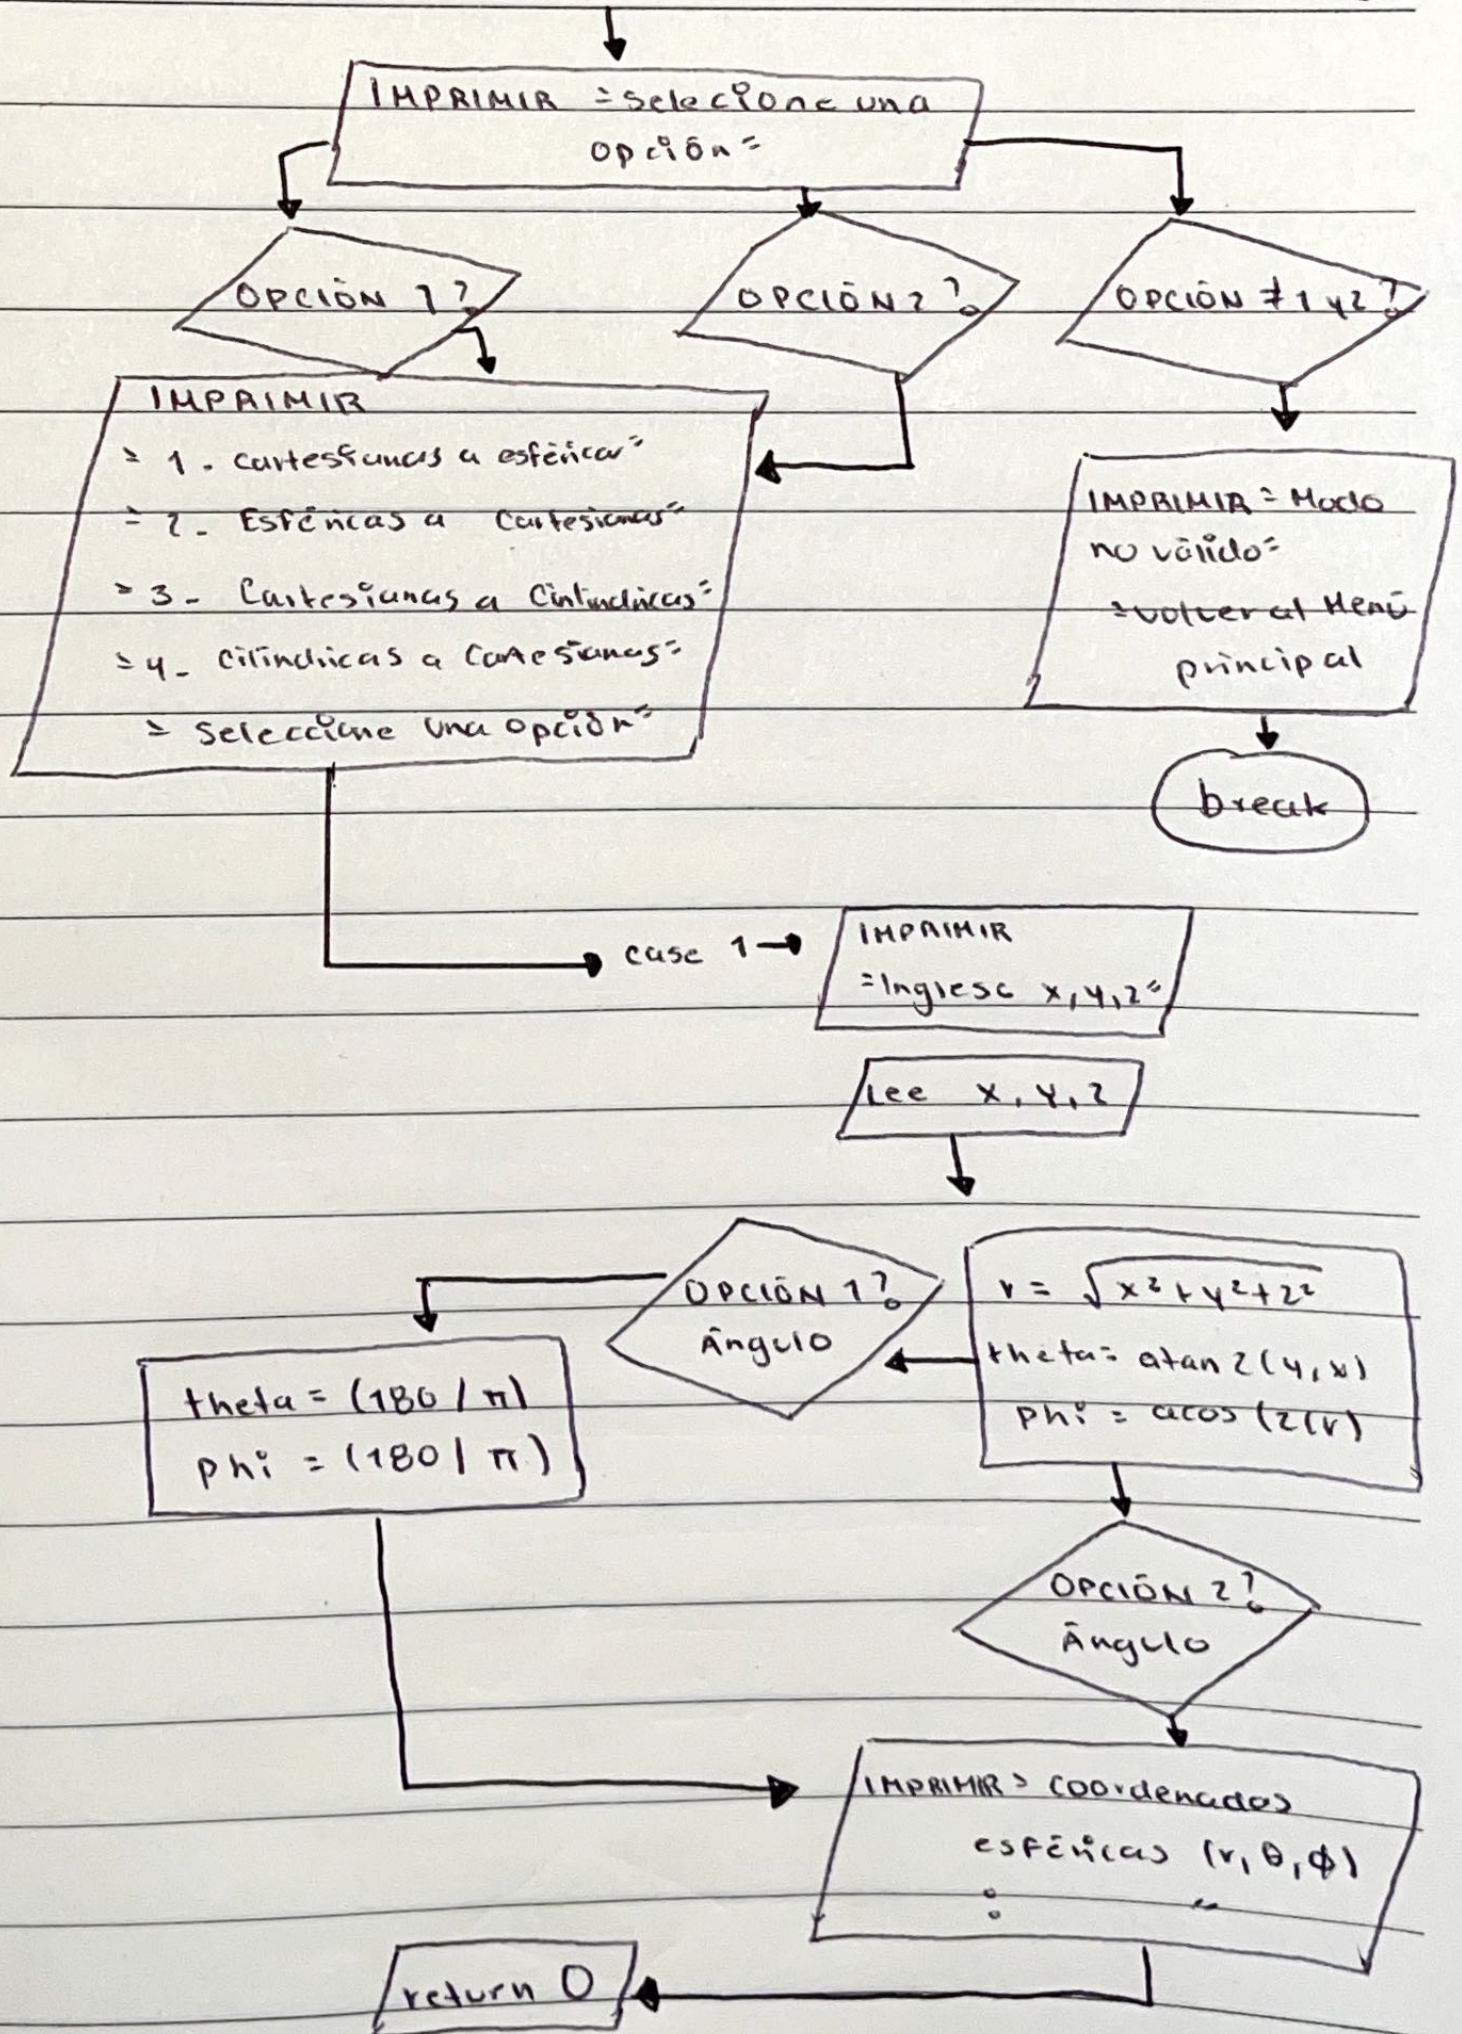 IMPRIMIR = selecione una
opción =
OPCIÓN 1?
OPCIÓN 2?
OPCIÓN ≠ 1 y 2?
IMPRIMIR
= 1 - cartesianas a esféricas =
= 2 - Esféricas a Cartesianas =
= 3 - Cartesianas a Cinlindricas =
= 4 - Cilindricas a Cartesianas =
= Seleccione una opción =
IMPRIMIR = Modo
no válido =
= volver al Menú
principal
break
case 1
IMPRIMIR
= Ingrese x, y, z =
Lee x, y, z
r = √x² + y² + z²
theta = atan2(y, x)
phi = acos(z(r)
OPCIÓN 1?
Ángulo
theta = (180 / π)
phi = (180 / π)
OPCIÓN 2?
Ángulo
IMPRIMIR > coordenadas
esféricas (r, θ, ϕ)
: "
return 0